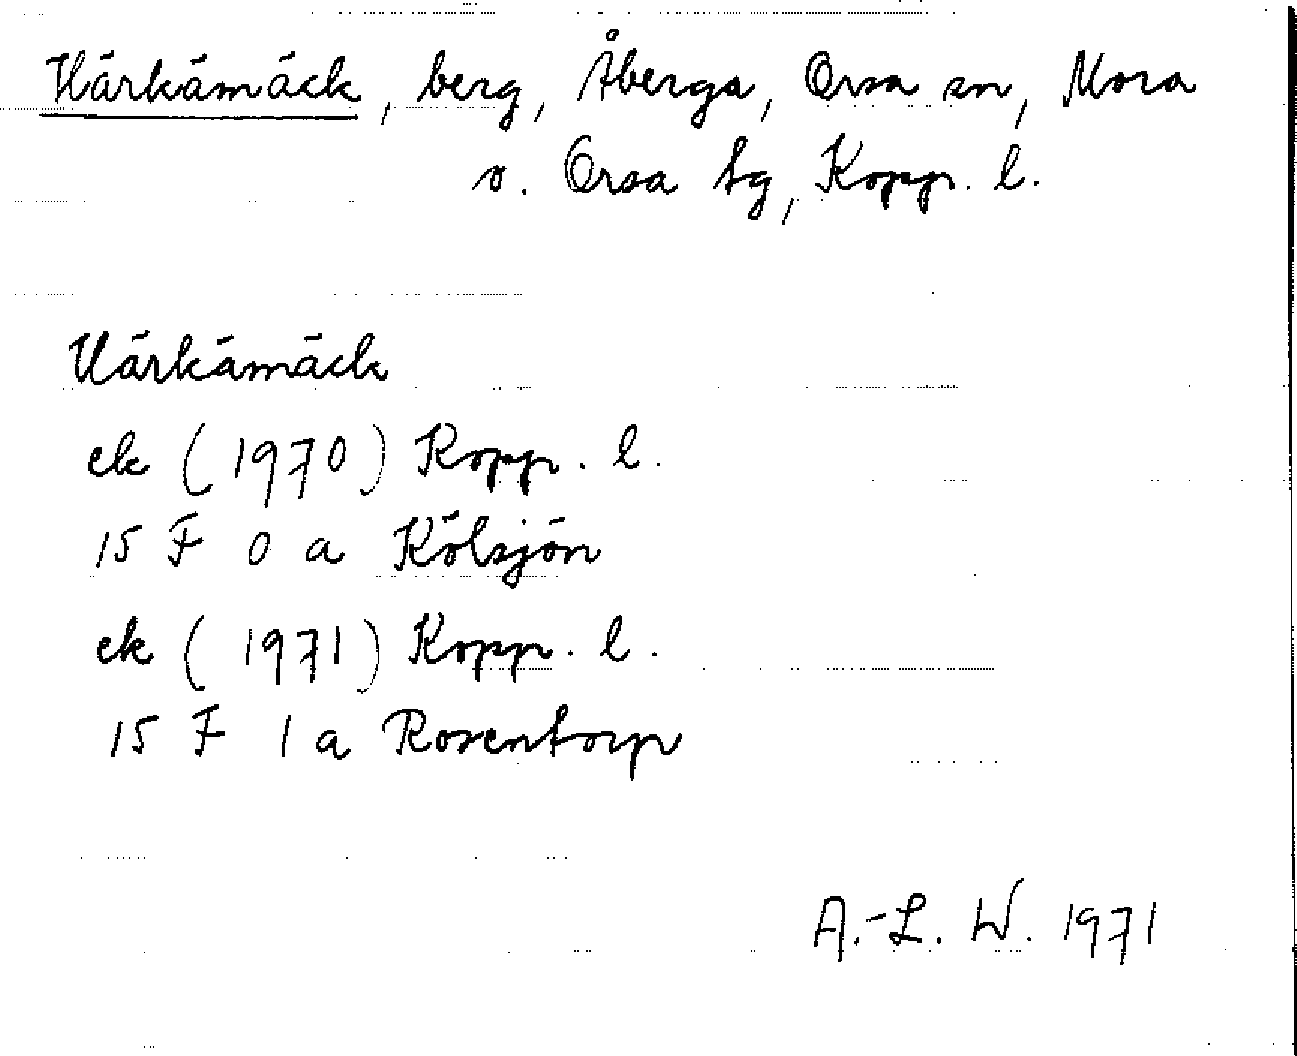 Härkämäck, berg, Åberga, Orsa sn, Mora
o. Orsa tg, Kopp. l.
Härkämäck
ek (1970) Kopp. l.
15 F 0 a Kölsjön
ek (1971) Kopp. l.
15 F 1 a Rosentorp
A.-L. W. 1971